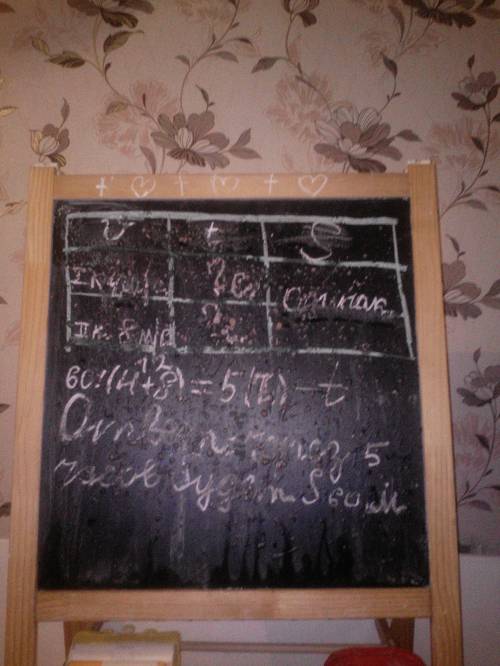 v t S
I к 4 м/с ? с Одинак.
II к. 8 м/с ?
12
60:(4+8)=5(с) — t
Ответ: через 5
часов будет S 60 м